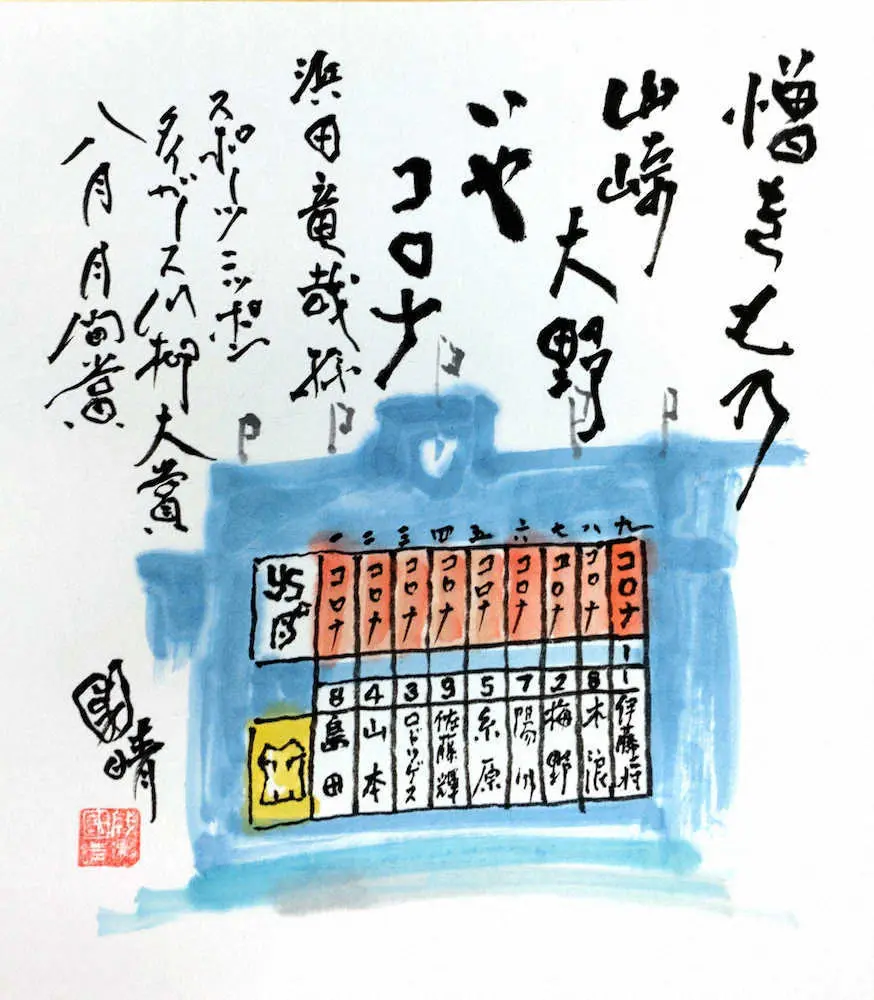 憎きも乃
山﨑
大野
いや
コロナ
浜田竜哉様
スポーツニッポン
タイガース川柳大賞
八月月間賞
一 二 三 四 五 六 七 八 九
コロナ コロナ コロナ コロナ コロナ コロナ コロナ コロナ コロナ
8 4 3 9 5 7 2 6 1
島田
山本
ロドリゲス
佐藤輝
糸原
陽川
梅野
木浪
伊藤将
國晴